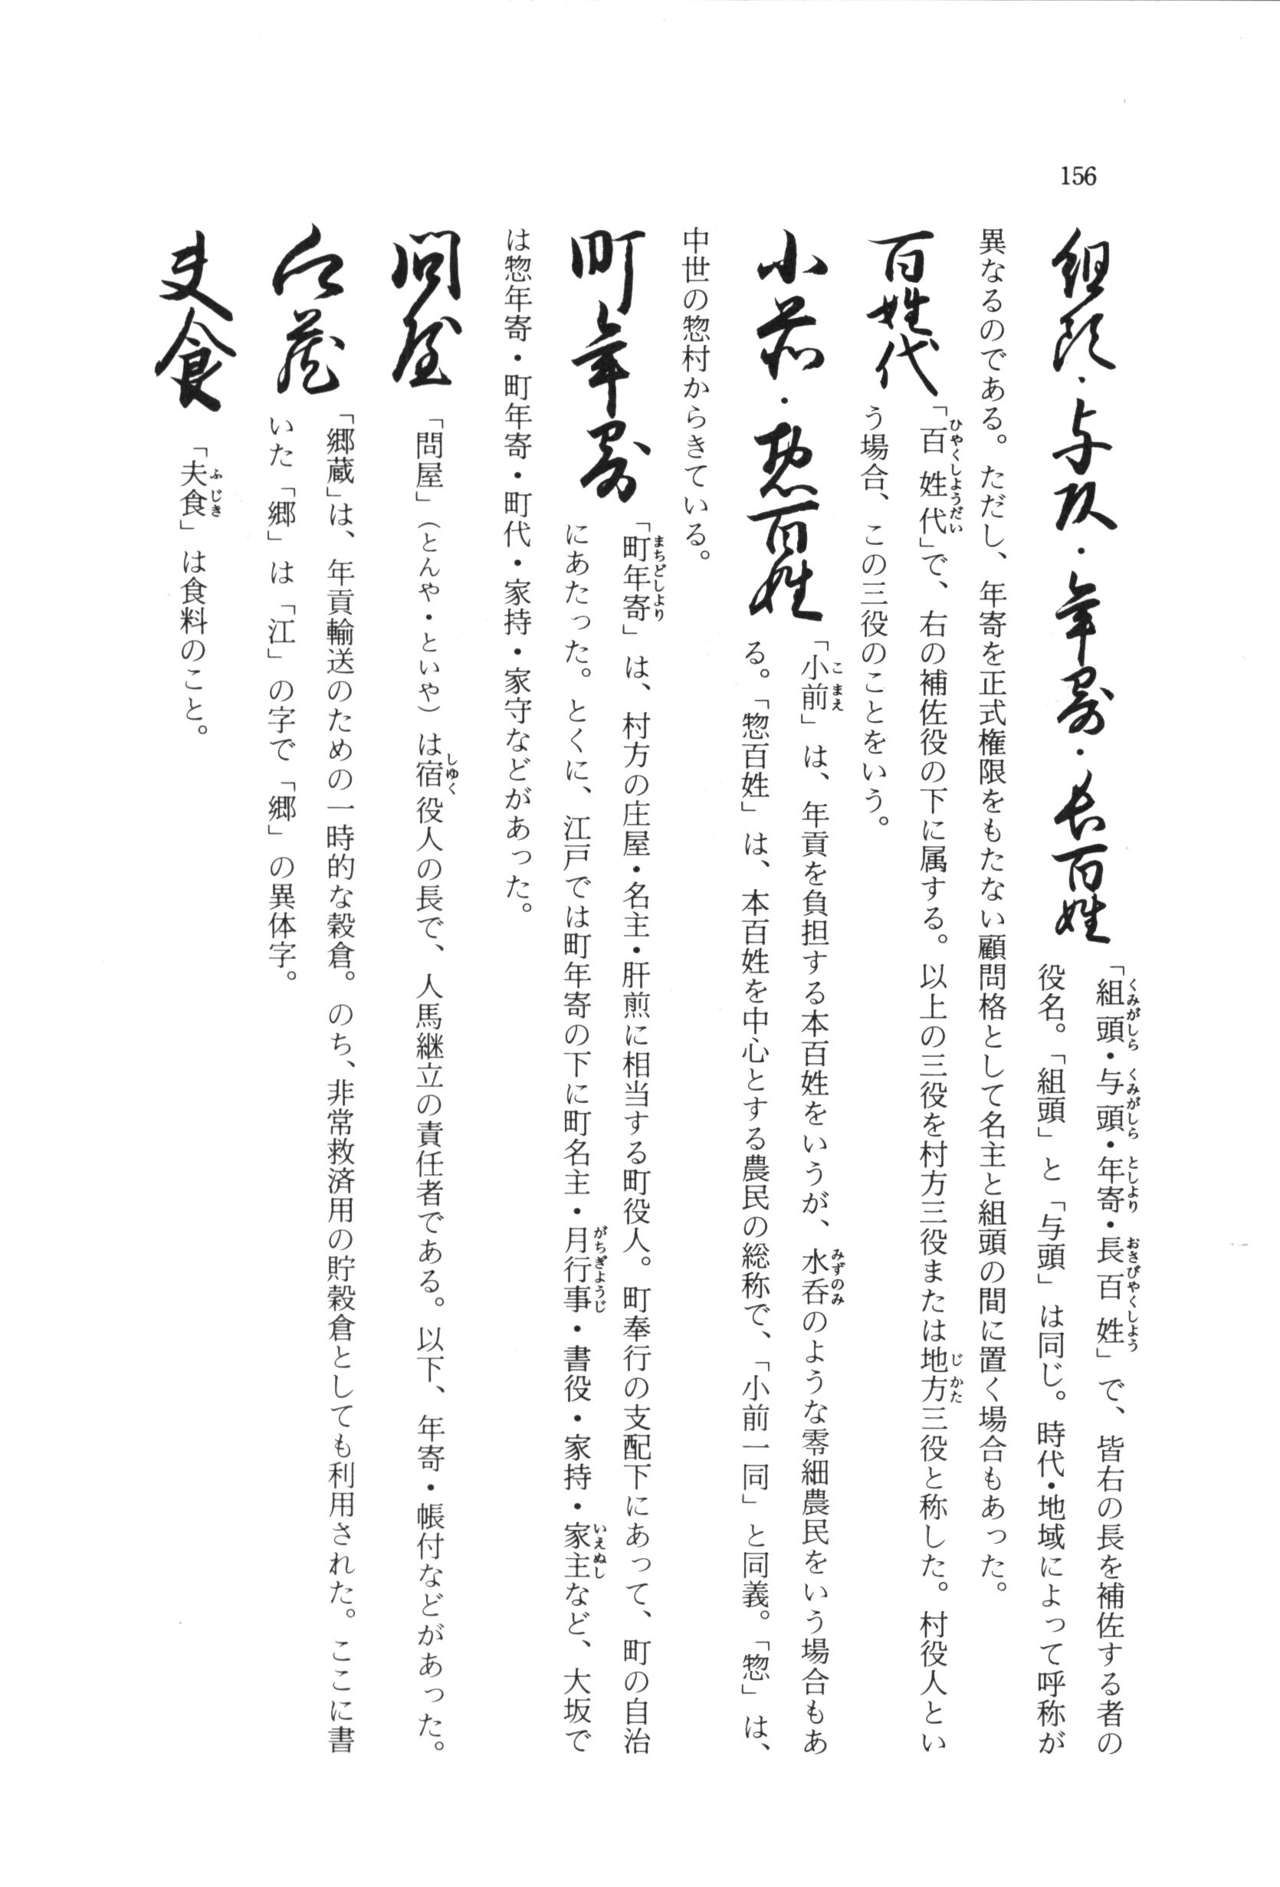 156
組頭・与頭・年寄・長百姓
「組頭・与頭・年寄・長百姓」で、皆右の長を補佐する者の
役名。「組頭」と「与頭」は同じ。時代・地域によって呼称が
異なるのである。ただし、年寄を正式権限をもたない顧問格として名主と組頭の間に置く場合もあった。
百姓代
「百姓代」で、右の補佐役の下に属する。以上の三役を村方三役または地方三役と称した。村役人とい
う場合、この三役のことをいう。
小前・惣百姓
「小前」は、年貢を負担する本百姓をいうが、水呑のような零細農民をいう場合もあ
る。「惣百姓」は、本百姓を中心とする農民の総称で、「小前一同」と同義。「惣」は、
中世の惣村からきている。
町年寄
「町年寄」は、村方の庄屋・名主・肝煎に相当する町役人。町奉行の支配下にあって、町の自治
にあたった。とくに、江戸では町年寄の下に町名主・月行事・書役・家持・家主など、大坂で
は惣年寄・町年寄・町代・家持・家守などがあった。
問屋
「問屋」（とんや・といや）は宿役人の長で、人馬継立の責任者である。以下、年寄・帳付などがあった。
江蔵
「郷蔵」は、年貢輸送のための一時的な穀倉。のち、非常救済用の貯穀倉としても利用された。ここに書
いた「郷」は「江」の字で「郷」の異体字。
夫食
「夫食」は食料のこと。
くみがしら くみがしら としより おさびやくしよう
ひやくしようだい
じかた
こまえ
みずのみ
まちどしより
がちぎようじ
いえぬし
しゆく
ふじき